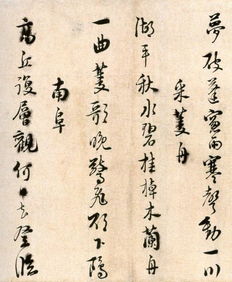 夢破蓬窗雨寒聲動一川
采菱舟
湖平秋水碧桂棹木蘭舟
一曲菱歌晚驚飛欲下鷗
南阜
高丘復層觀何日去登臨